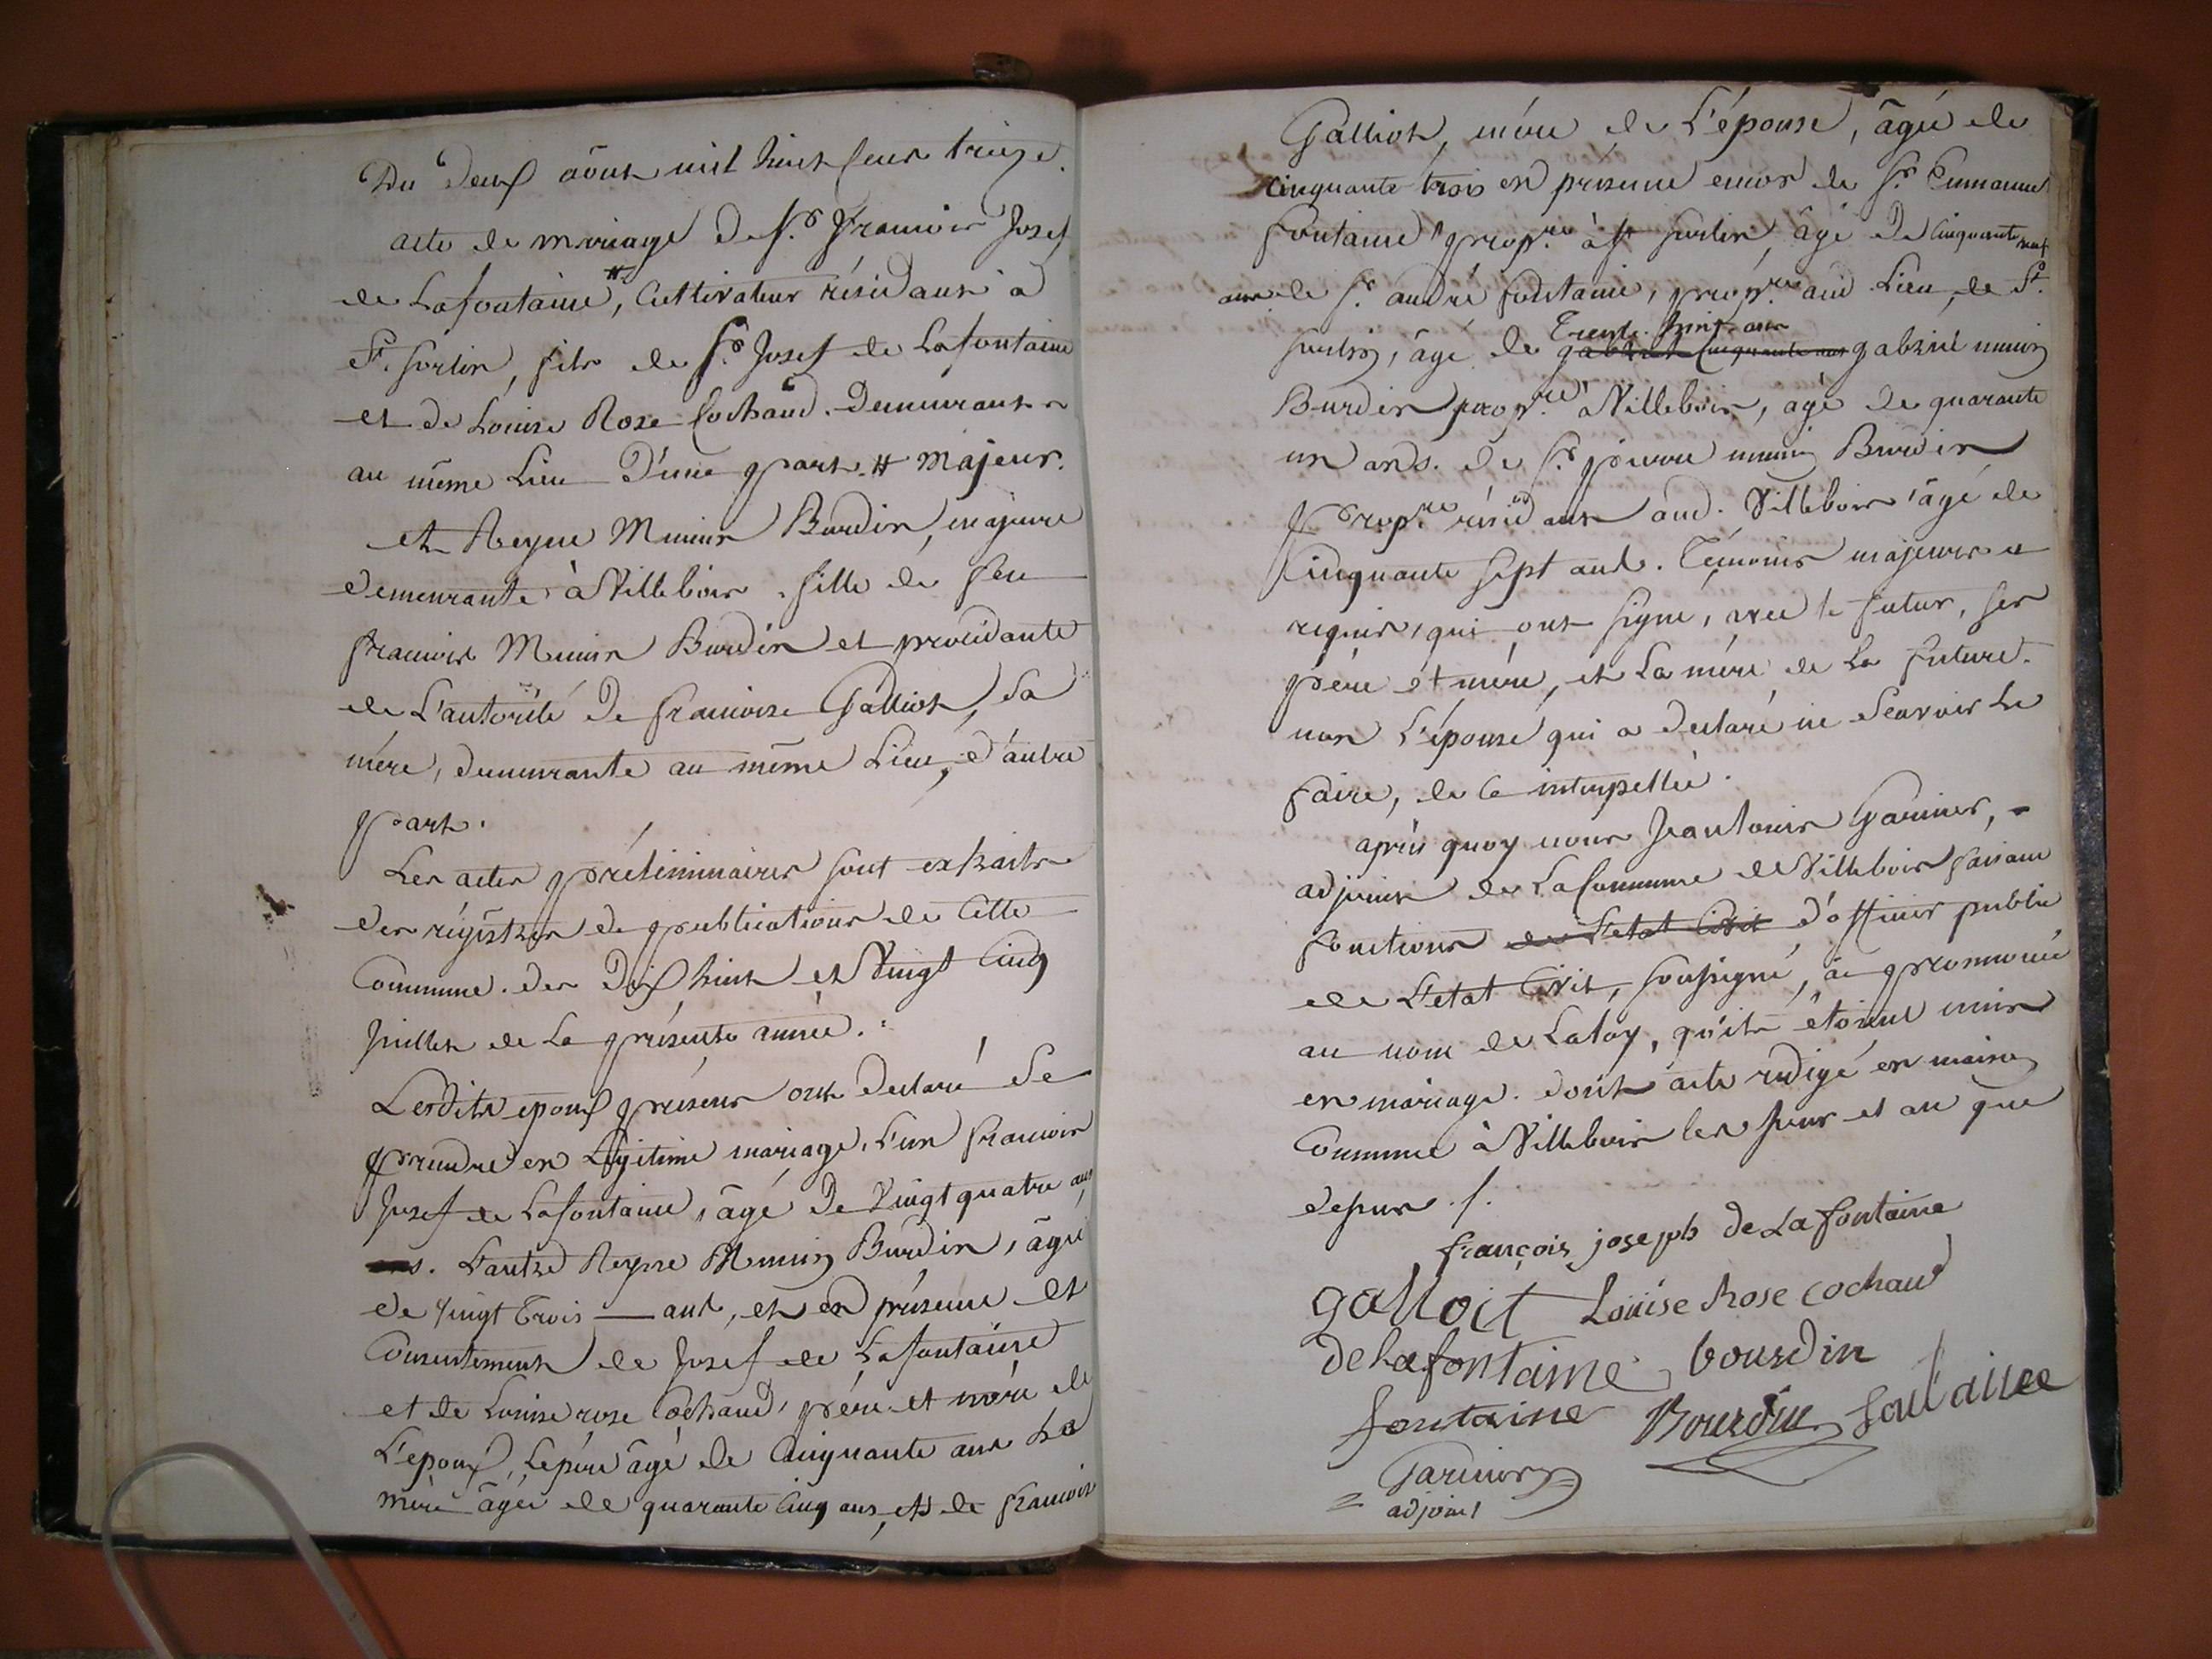 Du Deux août mil huit cent treize.
acte de mariage de S.r François Josef
de Lafontaine,# Cultivateur résidant à
St. Sorlin, fils de S.r Josef de Lafontaine
et de Louise Rose Cochaud. Demeurants
au même Lieu D'une part. # Majeur.
et Reyne Munin Burdin, majeure
demeurante à Villebois, fille de feu
françois Munin Burdin et procédante
de L'autorité de françoise Galliot, sa
mére, demeurante au même Lieu, d'autre
part.
Les actes préliminaires sont extraits
des régistres de publications de Cette
Commune. des Dix huit et Vingt Cinq
Juillet de La présente année.
Lesdits epoux présens ont déclaré Se
prendre en Légitime mariage, L'un françois
Josef de Lafontaine, âgé de Vingt quatre ans
L'autre Reyne Munin Burdin, âgée
de vingt Trois — ans, et en présence et
Consentement de Josef de Lafontaine
et de Louise rose Cochaud, pére et mére de
L'epoux, Le pére âgé de Cinquante ans La
mére âgée de quarante Cinq ans, et de françoise
Galliot, mére de L'épouse, âgée de
cinquante trois en présence encor de S.r Emmanuel
fontaine prop.re à St Sorlin, âgé de Cinquante neuf
ans de S.r andré fontaine, prop.re aud. Lieu, de St.
Sorlin, âgé de Trente huit ans gabriel Cinquante ans gabriel munin
Burdin prop.re à Villebois, âgé de quarante
un ans. de S.r pierre munin Burdin
Prop.re résidant aud. Villebois, âgé de
Cinquante Sept ans. Témoins majeurs et
requis, qui ont signé, avec le futur, ses
pére et mére, et La mére de La future.
non L'épouse qui a déclaré ne Scavoir Le
faire, de ce interpellée.
après quoy nous Jeantoine Garinier,
adjoint de La Commune de Villebois faisant
fonctions de L'etat Civil d'officier public
de L'etat Civil, soussigné, a prononcé
au nom de La loy, qu'ils étoient unis
en mariage. dont acte rédigé en maison
Commune à Villebois les Jour et an que
dessus ./.
françois joseph de La fontaine
galloit Louise Rose cochaud
de La fontaine bourdin
fontaine Bourdin
Garinier
adjoint